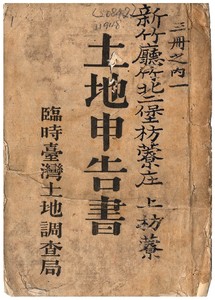 三冊之内一
新竹廳竹北二堡枋藔庄 上枋藔
土地申告書
臨時臺灣土地調查局